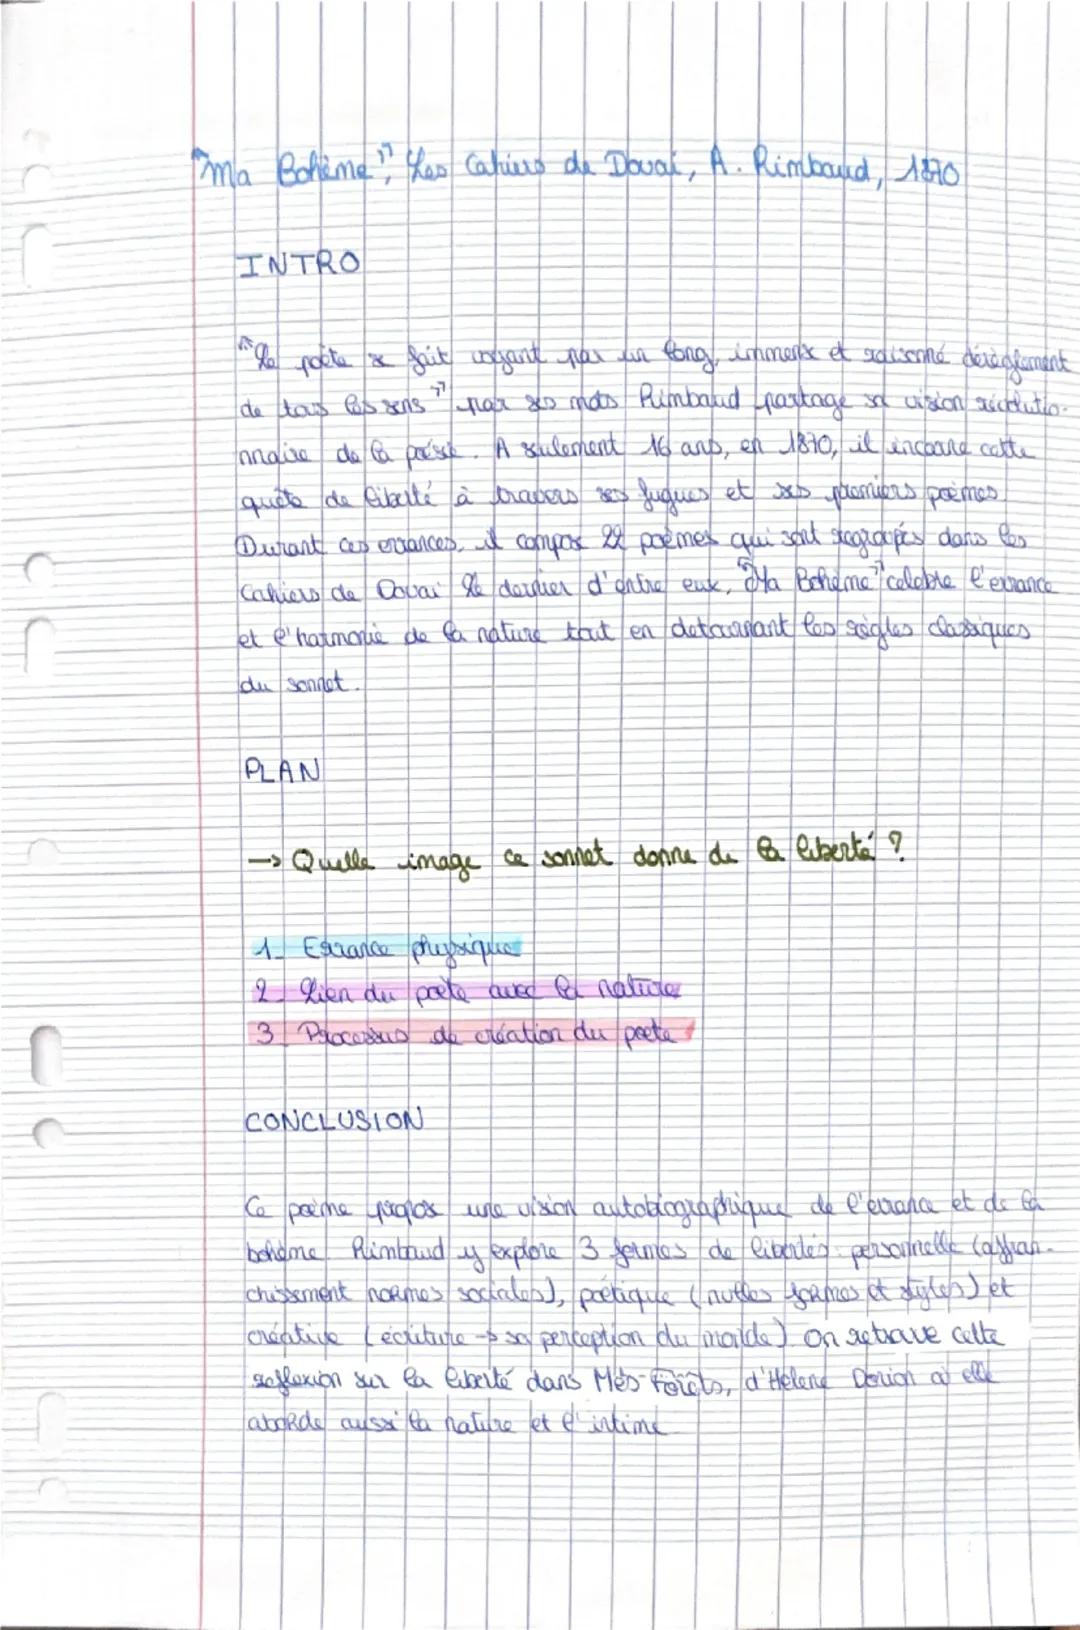 "Ma Bohème", Les Cahiers de Douai, A. Rimbaud, 1870
INTRO
"Le poète se fait voyant par un long, immense et raisonné dérèglement
de tous les sens" par ses mots Rimbaud partage sa vision révolutio-
nnaire de la poésie. A seulement 16 ans, en 1870, il incarne cette
quête de liberté à travers ses fugues et ses premiers poèmes.
Durant ces errances, il compose 22 poèmes qui sont regroupés dans les
Cahiers de Douai Le dernier d'entre eux, "Ma Bohème" celebre l'errance
et l'harmonie de la nature tout en detournant les règles classiques
du sonnet.
PLAN
→ Quelle image ce sonnet donne de la liberté ?
1_ Errance physique
2_ Lien du poète avec la nature
3_ Processus de création du poete
CONCLUSION
Ce poème propose une vision autobiographique de l'errance et de la
bohème. Rimbaud y explore 3 formes de libertés: personnelle (affran-
chissement normes sociales), poétique (nvlles formes et styles) et
créative (écriture → sa perception du monde) On retrouve cette
reflexion sur la liberté dans Mes Forêts, d'Hélène Dorion où elle
aborde aussi la nature et l'intime